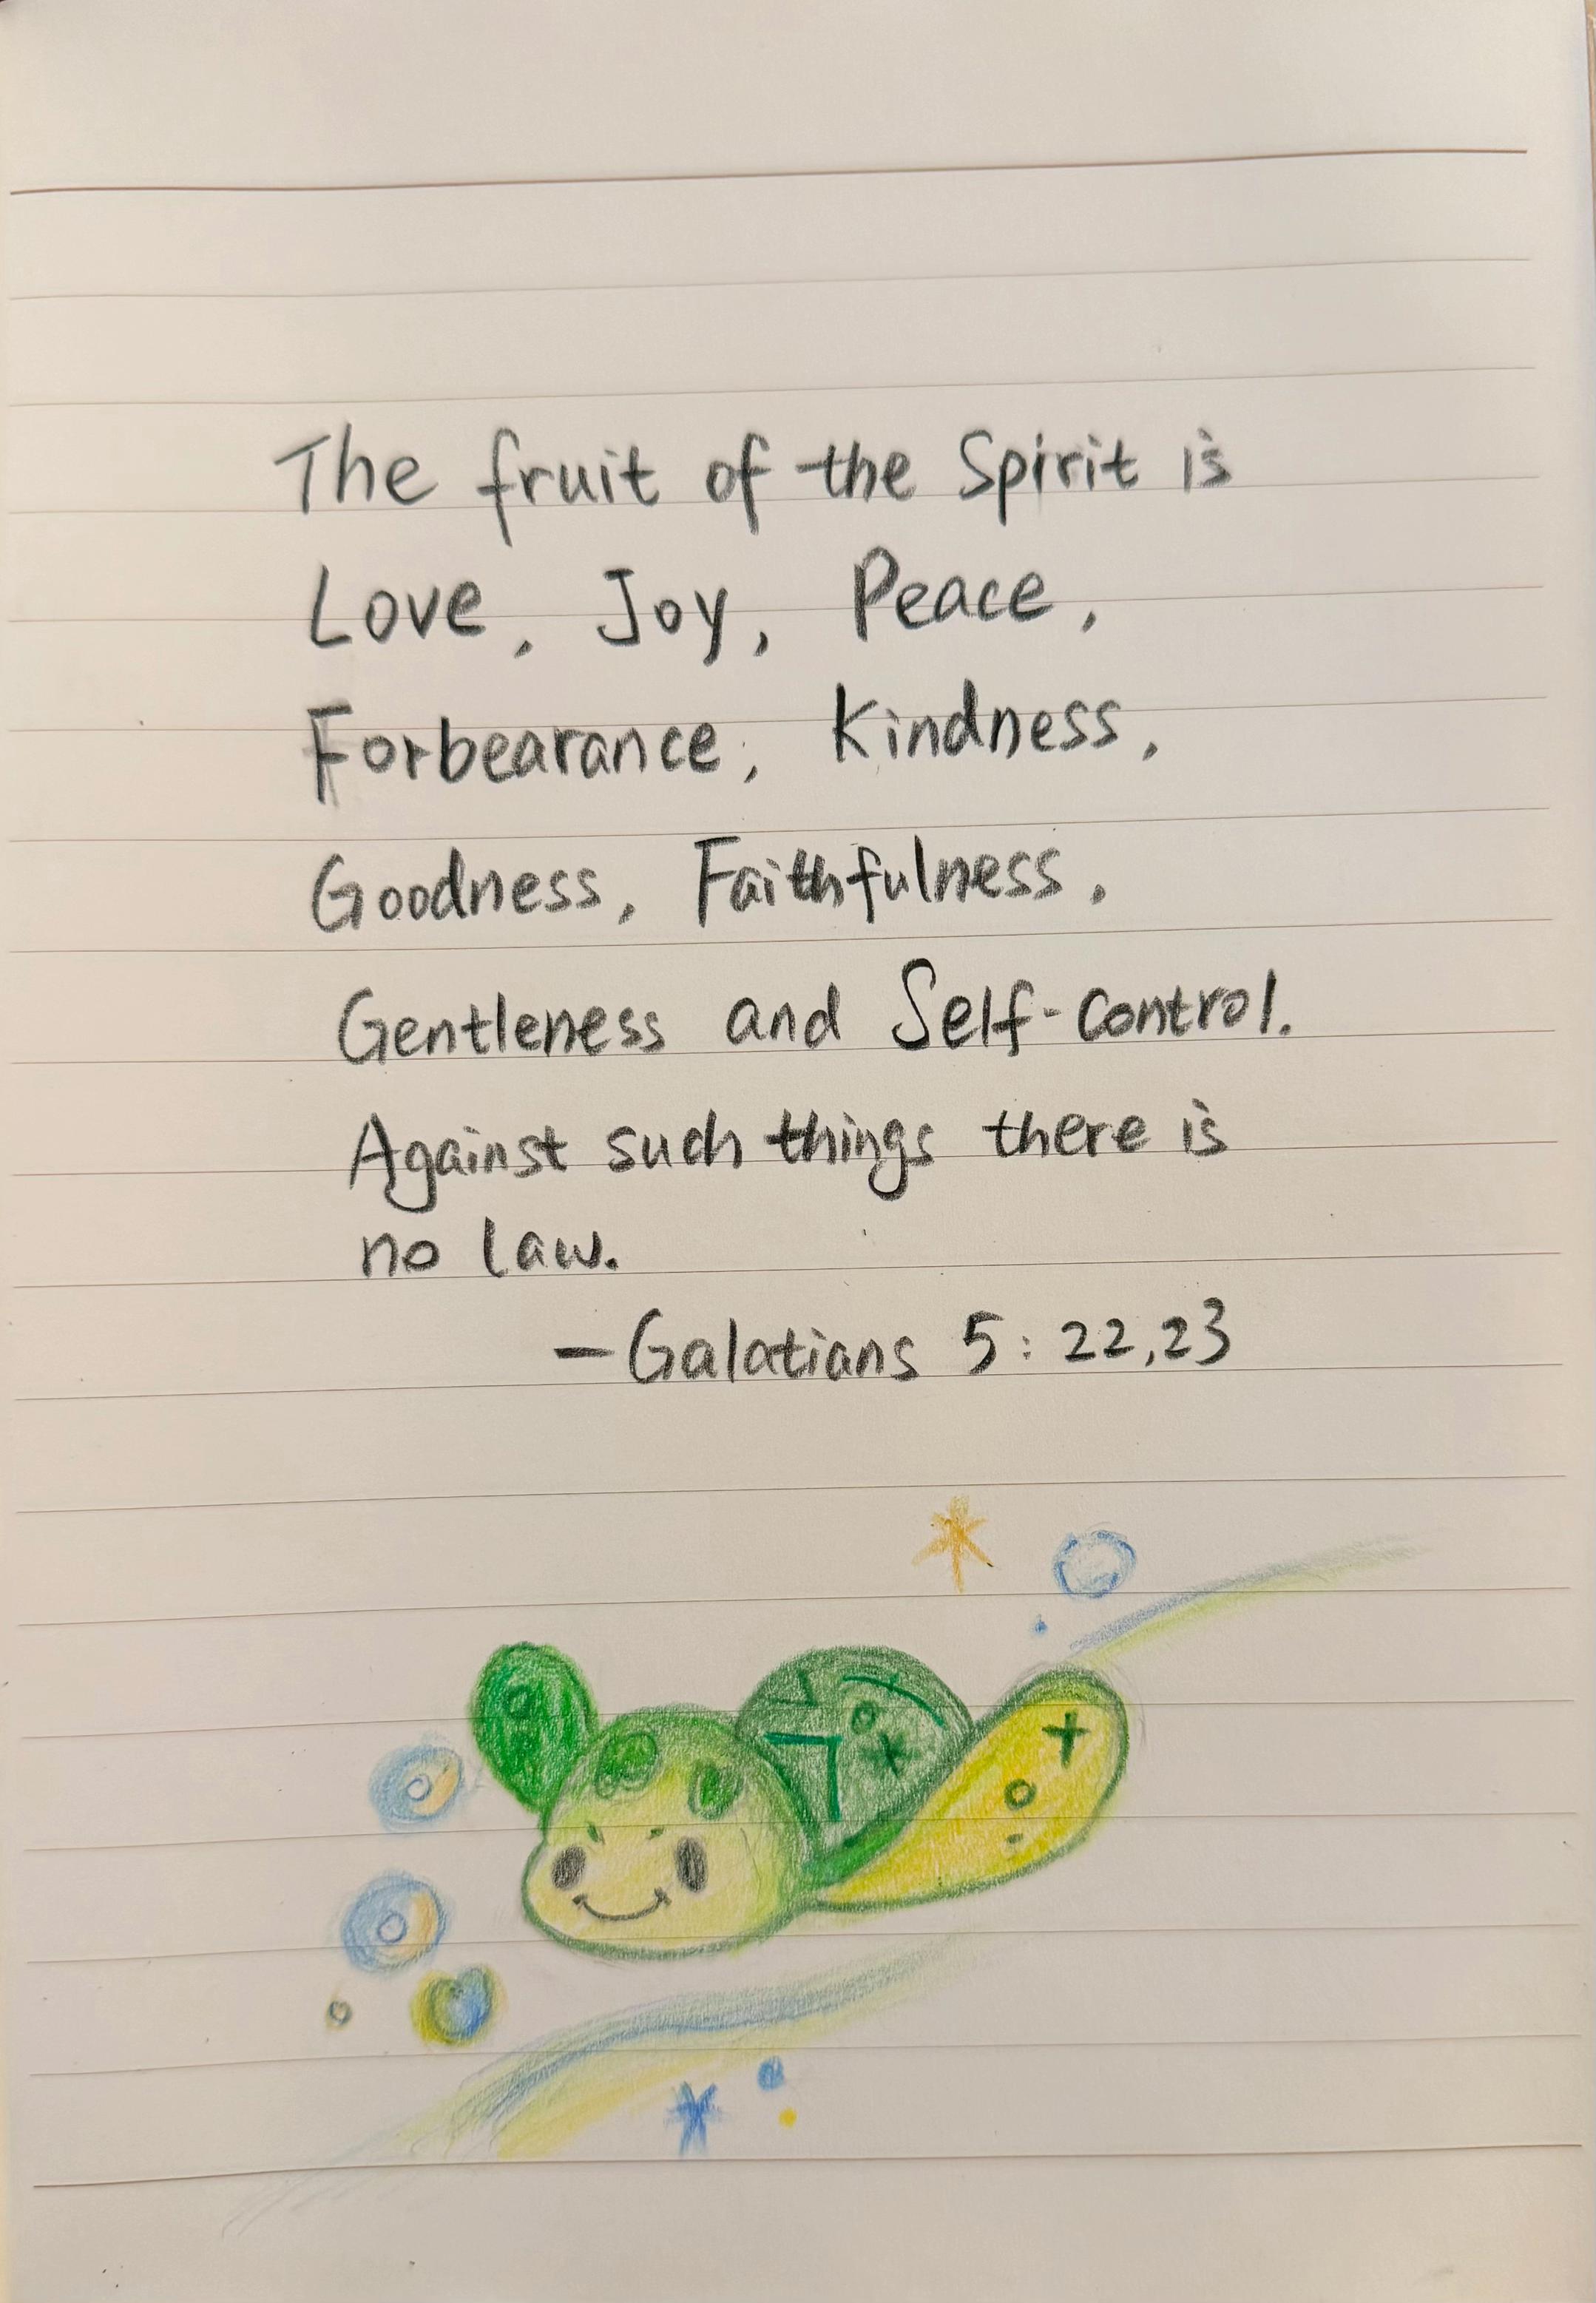 The fruit of the Spirit is
Love, Joy, Peace,
Forbearance, Kindness,
Goodness, Faithfulness,
Gentleness and Self-control.
Against such things there is
no law.
—Galatians 5:22,23